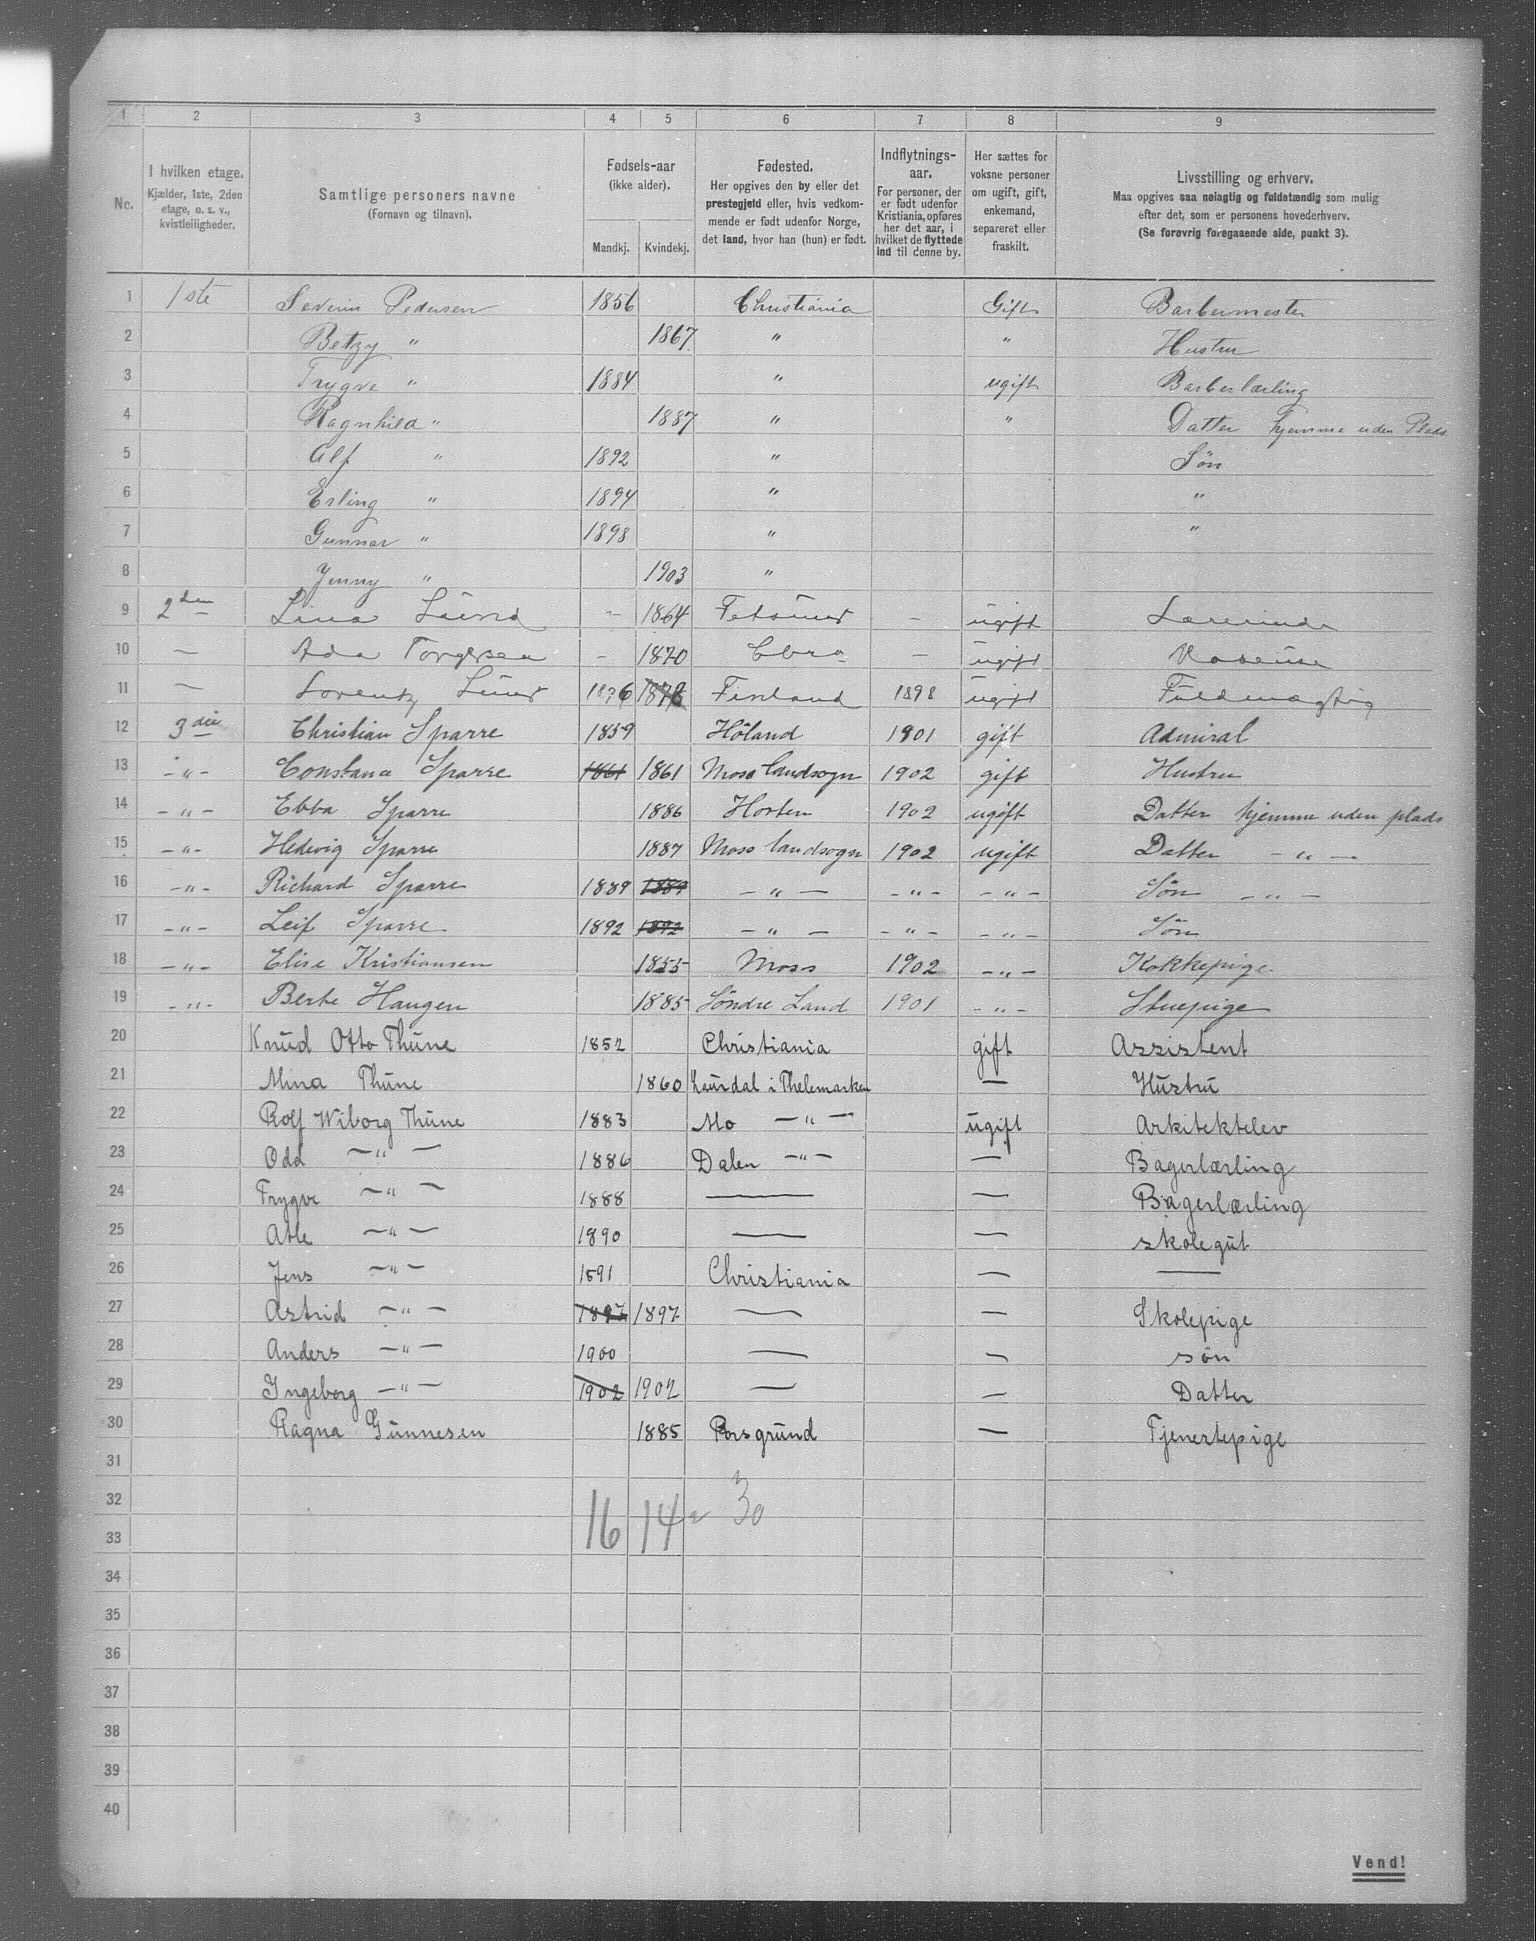 1 2 3 4 5 6 7 8 9
No. | I hvilken etage. Kjælder, 1ste, 2den etage, o. s. v., kvistleiligheder. | Samtlige personers navne (Fornavn og tilnavn). | Fødsels-aar (ikke alder). Mandkj. Kvindekj. | Fødested. Her opgives den by eller det prestegjeld eller, hvis vedkommende er født udenfor Norge, det land, hvor han (hun) er født. | Indflytnings-aar. For personer, der er født udenfor Kristiania, opføres her det aar, i hvilket de flyttede ind til denne by. | Her sættes for voksne personer om ugift, gift, enkemand, separeret eller fraskilt. | Livsstilling og erhverv. Maa opgives saa nøiagtig og fuldstændig som mulig efter det, som er personens hovederhverv. (Se forøvrig foregaaende side, punkt 3).
1 1ste Severin Pedersen 1856 Christiania Gift Barbermester
2 Betzy " 1867 " " Hustru
3 Trygve " 1884 " ugift Barberlærling
4 Ragnhild " 1887 " " Datter hjemme uden Plads
5 Alf " 1892 " Søn
6 Erling " 1894 " "
7 Gunnar " 1898 " "
8 Jenny " 1903 "
9 2den Lina Lund – 1864 – ugift Lærerinde
10 — Ada Torgersen – 1870 — ugift
11 — Lorentz Lund 1876 1878 Finland 1898 ugift Fuldmægtig
12 3die Christian Sparre 1859 Höland 1901 gift Admiral
13 –"– Constance Sparre 1861 1861 Moss landsogn 1902 gift Hustru
14 –"– Ebba Sparre 1886 Horten 1902 ugift Datter hjemme uden plads
15 –"– Hedvig Sparre 1887 Moss landsogn 1902 ugift Datter –"–
16 –"– Richard Sparre 1889 1889 –"– –"– –"– Sön –"–
17 –"– Leif Sparre 1892 1892 –"– –"– –"– Sön
18 –"– Elise Kristiansen 1855 Moss 1902 –"– Kokkepige
19 –"– Berte Haugen 1885 Söndre Land 1901 –"– Stuepige
20 Knud Otto Thune 1852 Christiania gift Assistent
21 Mina Thune 1860 Laurdal i Thelemarken — Hustru
22 Rolf Wiborg Thune 1883 Mo –"– ugift Arkitektelev
23 Odd –"– 1886 Dalen –"– — Bagerlærling
24 Trygve –"– 1888 — — Bagerlærling
25 Atle –"– 1890 — — skolegut
26 Jens –"– 1891 Christiania — —
27 Astrid –"– 1897 1897 — — Skolepige
28 Anders –"– 1900 — — søn
29 Ingeborg –"– 1902 1902 — — Datter
30 Ragna Gunnesen 1885 Porsgrund — Tjenestepige
31
32 16 14 = 30
33
34
35
36
37
38
39
40
Vend!